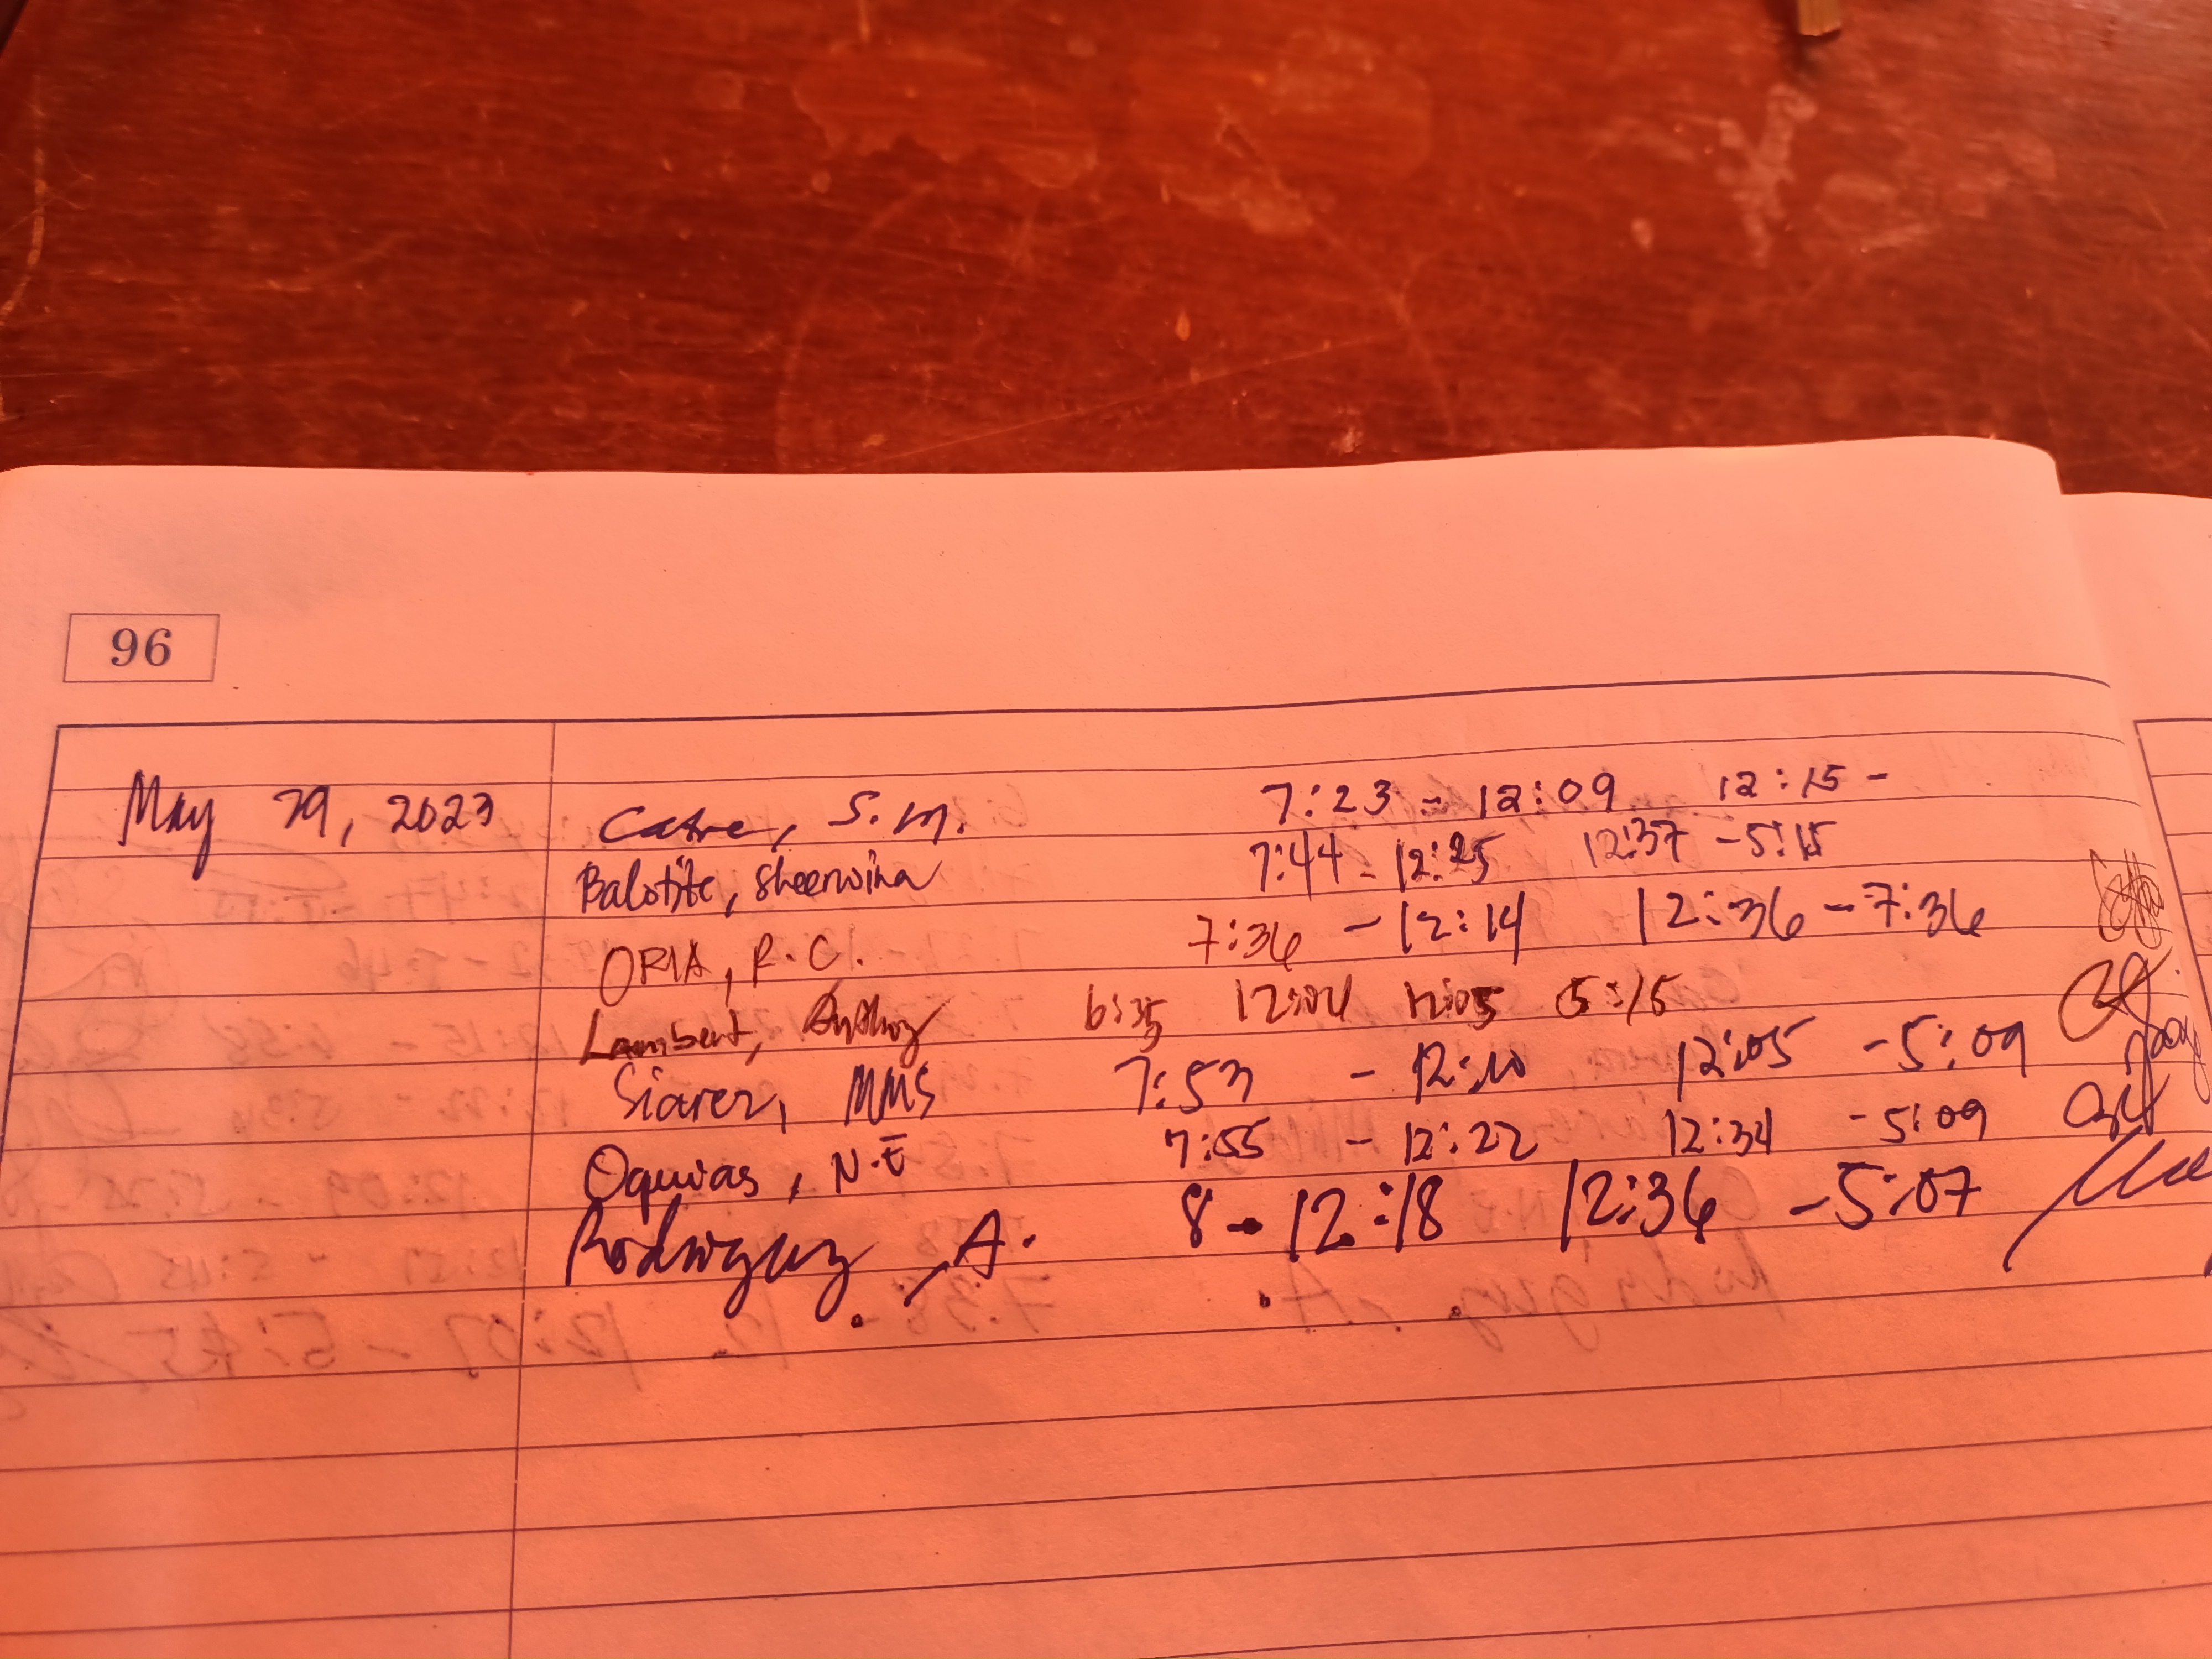 96
May 29, 2023 Catre, S.M. 7:23 - 12:09 12:15 -
Balotite, Sheerwina 7:44 - 12:25 12:37 - 5:15
ORIA, R.C. 7:36 - 12:14 12:36 - 7:36
Lambert, Anthony 6:35 12:04 12:05 5:15
Siarez, MMS 7:53 - 12:10 12:05 - 5:09
Oquias, N.E 7:55 - 12:22 12:34 - 5:09
Rodriguez, A. 8 - 12:18 12:36 - 5:07